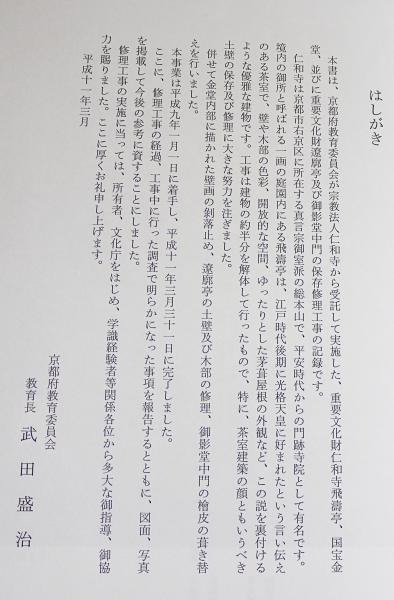 はしがき
本書は、京都府教育委員会が宗教法人仁和寺から受託して実施した、重要文化財仁和寺飛濤亭、国宝金
堂、並びに重要文化財遼廓亭及び御影堂中門の保存修理工事の記録です。
仁和寺は京都市右京区に所在する真言宗御室派の総本山で、平安時代からの門跡寺院として有名です。
境内の御所と呼ばれる一画の庭園内にある飛濤亭は、江戸時代後期に光格天皇に好まれたという言い伝え
のある茶室で、壁や木部の色彩、開放的な空間、ゆったりとした茅葺屋根の外観など、この説を裏付ける
ような優雅な建物です。工事は建物の約半分を解体して行ったもので、特に、茶室建築の顔ともいうべき
土壁の保存及び修理に大きな努力を注ぎました。
併せて金堂内部に描かれた壁画の剝落止め、遼廓亭の土壁及び木部の修理、御影堂中門の檜皮の葺き替
えを行いました。
本事業は平成九年一月一日に着手し、平成十一年三月三十一日に完了しました。
ここに、修理工事の経過、工事中に行った調査で明らかになった事項を報告するとともに、図面、写真
を掲載して今後の参考に資することにしました。
修理工事の実施に当っては、所有者、文化庁をはじめ、学識経験者等関係各位から多大な御指導、御協
力を賜りました。ここに厚くお礼申し上げます。
平成十一年三月
京都府教育委員会
教育長 武田盛治